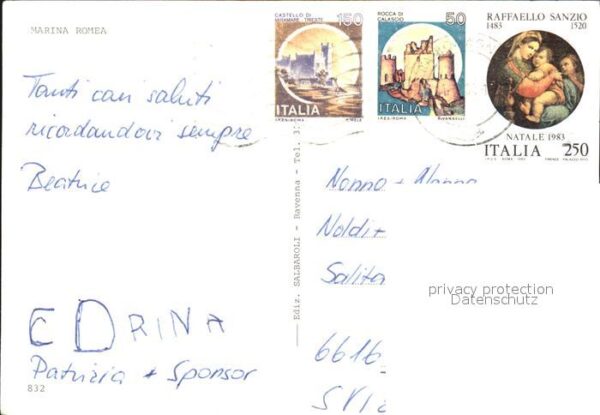 MARINA ROMEA
CASTELLO DI
MIRAMARE TRIESTE
150
ITALIA
I.P.S.-ROMA
ROCCA DI
CALASCIO
50
ITALIA
I.P.S.-ROMA
RAFFAELLO SANZIO
1483 1520
NATALE 1983
ITALIA 250
Tanti cari saluti
ricordandovi sempre
Beatrice
EDRINA
Patrizia + Sponsor
832
Ediz. SALBAROLI - Ravenna - Tel. 3
Nonno + Nonna
Noldi +
Salita
6616
SVIZ
privacy protection
Datenschutz